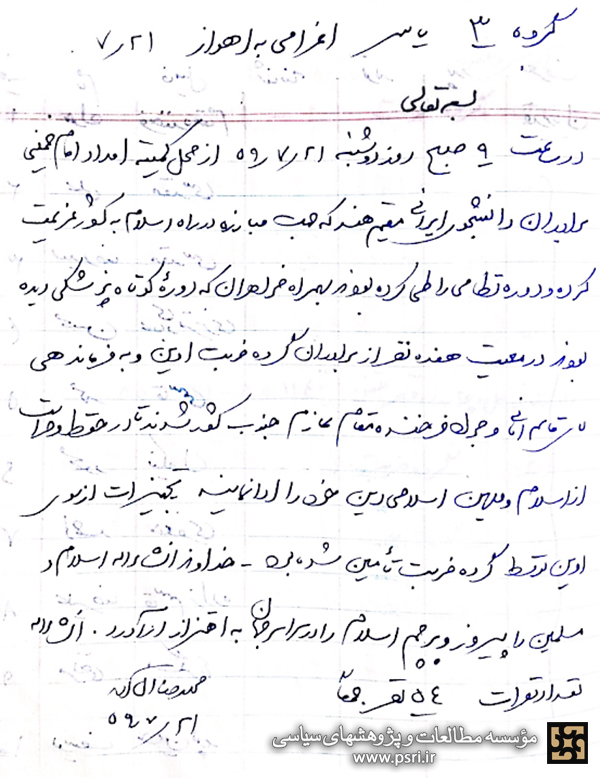 گروه ۳ یاسر اعزامی به اهواز ۷/۲۱
بسمه تعالی
در ساعت ۹ صبح روز دوشنبه ۵۹/۷/۲۱ از محل کمیته امداد امام خمینی
برادران دانشجوی ایرانی مقیم هند که جهت مبارزه در راه اسلام به کشور عزیمت
کرده و دوره نظامی را طی کرده بودند بهمراه خواهران که دوره کوتاه پزشکی دیده
بودند در معیت هفده نفر از برادران گروه ضربت اوین و به فرماندهی
قاسم امانی و جواد فرخنده مقام عازم جنوب کشور شدند تا در حفظ و حراست
از اسلام و میهن اسلامی دین خود را ادا نمایند تجهیزات از سوی
اوین توسط گروه ضربت تأمین شده بود - خداوند انشاءاله اسلام و
مسلمین را پیروز و پرچم اسلام را در سراسر جهان به اهتزاز درآورد. انشاءاله
تعداد نفرات ۵۴ نفر جمعاً
محمدرضا
۵۹/۷/۲۱
مؤسسه مطالعات و پژوهشهای سیاسی
www.psri.ir